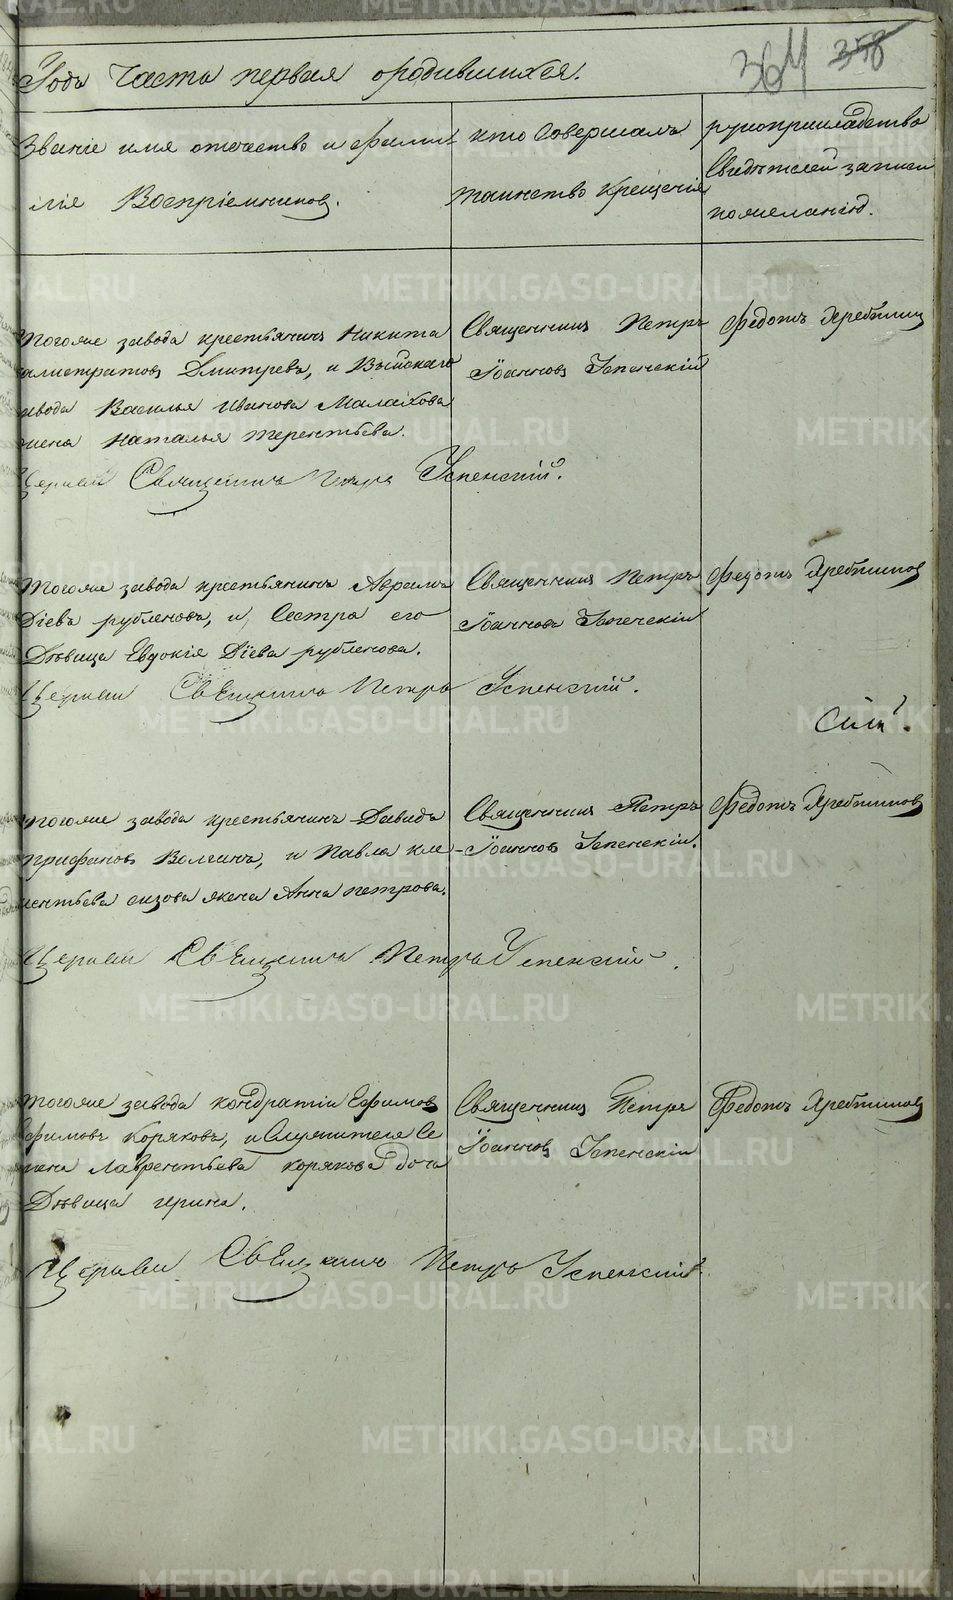 364 358
Года Часть первая о родившихся.
Званіе имя отчество и фами-
лія Воспріемниковъ.
кто Совершалъ
таинство крещенія
рукоприкладство
Свидѣтелей записи
по желанію.
тогоже завода крестьянинъ Никита
Дмитревъ, и Выйскаго
завода Василья Иванова Малахова
жена Наталья терентьева.
Священникъ Петръ
Іоанновъ Успенскій
Федотъ Хребтиковъ
Церкви Священникъ Петръ Успенскій.
тогоже завода крестьянинъ Авраамъ
Діевъ рубленовъ, и Сестра его
Дѣвица Евдокія Діева рубленова.
Священникъ Петръ
Іоанновъ Успенскій
Федотъ Хребтиковъ
Церкви Священникъ Петръ Успенскій.
тогоже завода крестьянинъ Давидъ
трифановъ Волгинъ, и Павла кле-
ментьева сизова жена Анна петрова.
Священникъ Петръ
Іоанновъ Успенскій.
Федотъ Хребтиковъ
Церкви Священникъ Петръ Успенскій.
тогоже завода кондратій Ефимовъ
Ефимовъ Коряковъ, и Служителя Се
мена Лаврентьева корякова дочь
Дѣвица ирина.
Священникъ Петръ
Іоанновъ Успенскій
Федотъ Хребтиковъ
Церкви Священникъ Петръ Успенскій.
METRIKI.GASO-URAL.RU